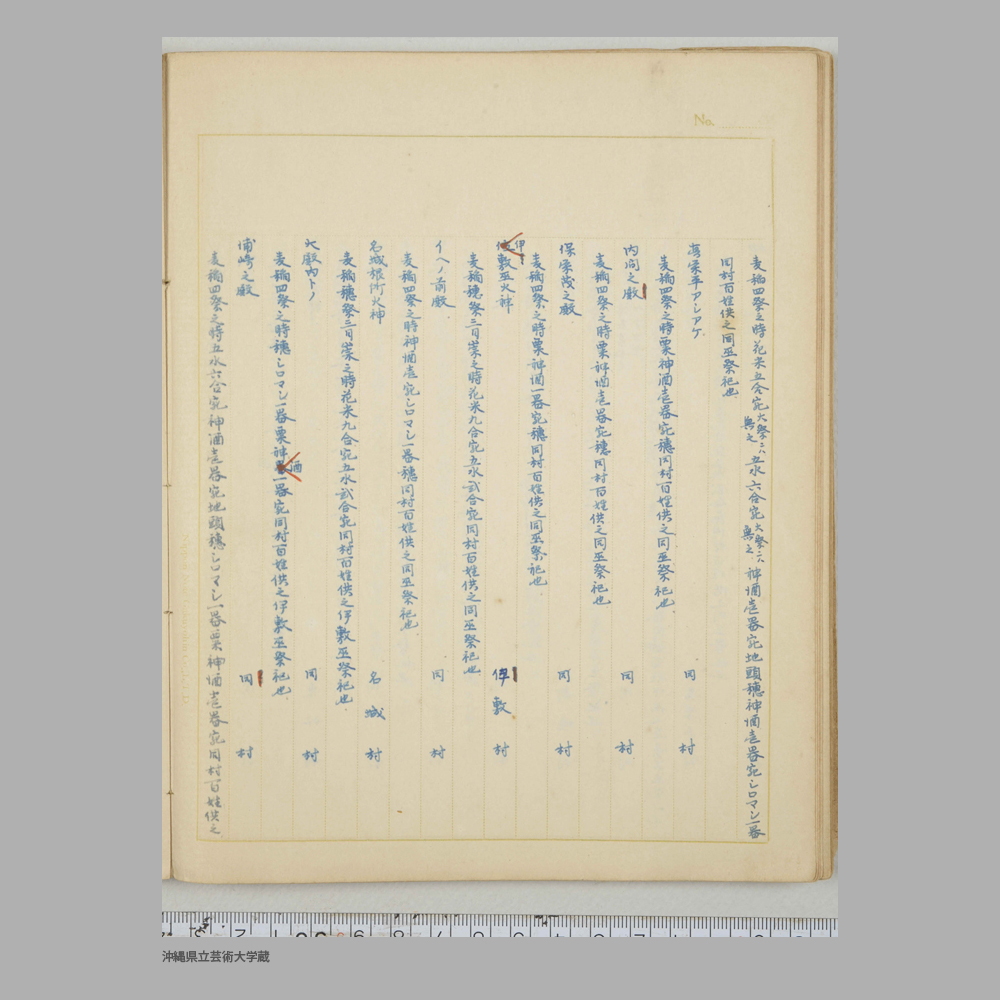 No.
麦稲四祭之時花米五合宛大祭ニハ無之五水六合宛大祭ニハ無之神酒壱器宛地頭穂神酒壱器宛シロマシ一器
同村百姓供之同巫祭祀也
アシアケ 同村
麦稲四祭之時粟神酒壱器宛穂同村百姓供之同巫祭祀也
内間之殿 同村
麦稲四祭之時粟神酒壱器宛穂同村百姓供之同巫祭祀也
保栄茂之殿 同村
麦稲四祭之時粟神酒一器宛穂同村百姓供之同巫祭祀也
伊敷巫火神 伊敷村
麦稲穂祭三日崇之時花米九合宛五水弐合宛同村百姓供之同巫祭祀也
イヘノ前殿 同村
麦稲四祭之時神酒壱宛シロマシ一器穂同村百姓供之同巫祭祀也
名城根所火神 名城村
麦稲穂祭三日崇之時花米九合宛五水弐合宛同村百姓供之伊敷巫祭祀也
大殿内トノ 同村
麦稲四祭之時穂シロマシ一器粟神酒一器宛同村百姓供之伊敷巫祭祀也
浦崎之殿 同村
麦稲四祭之時五水六合宛神酒壱器宛地頭穂シロマシ一器粟神酒壱器宛同村百姓供之
沖縄県立芸術大学蔵